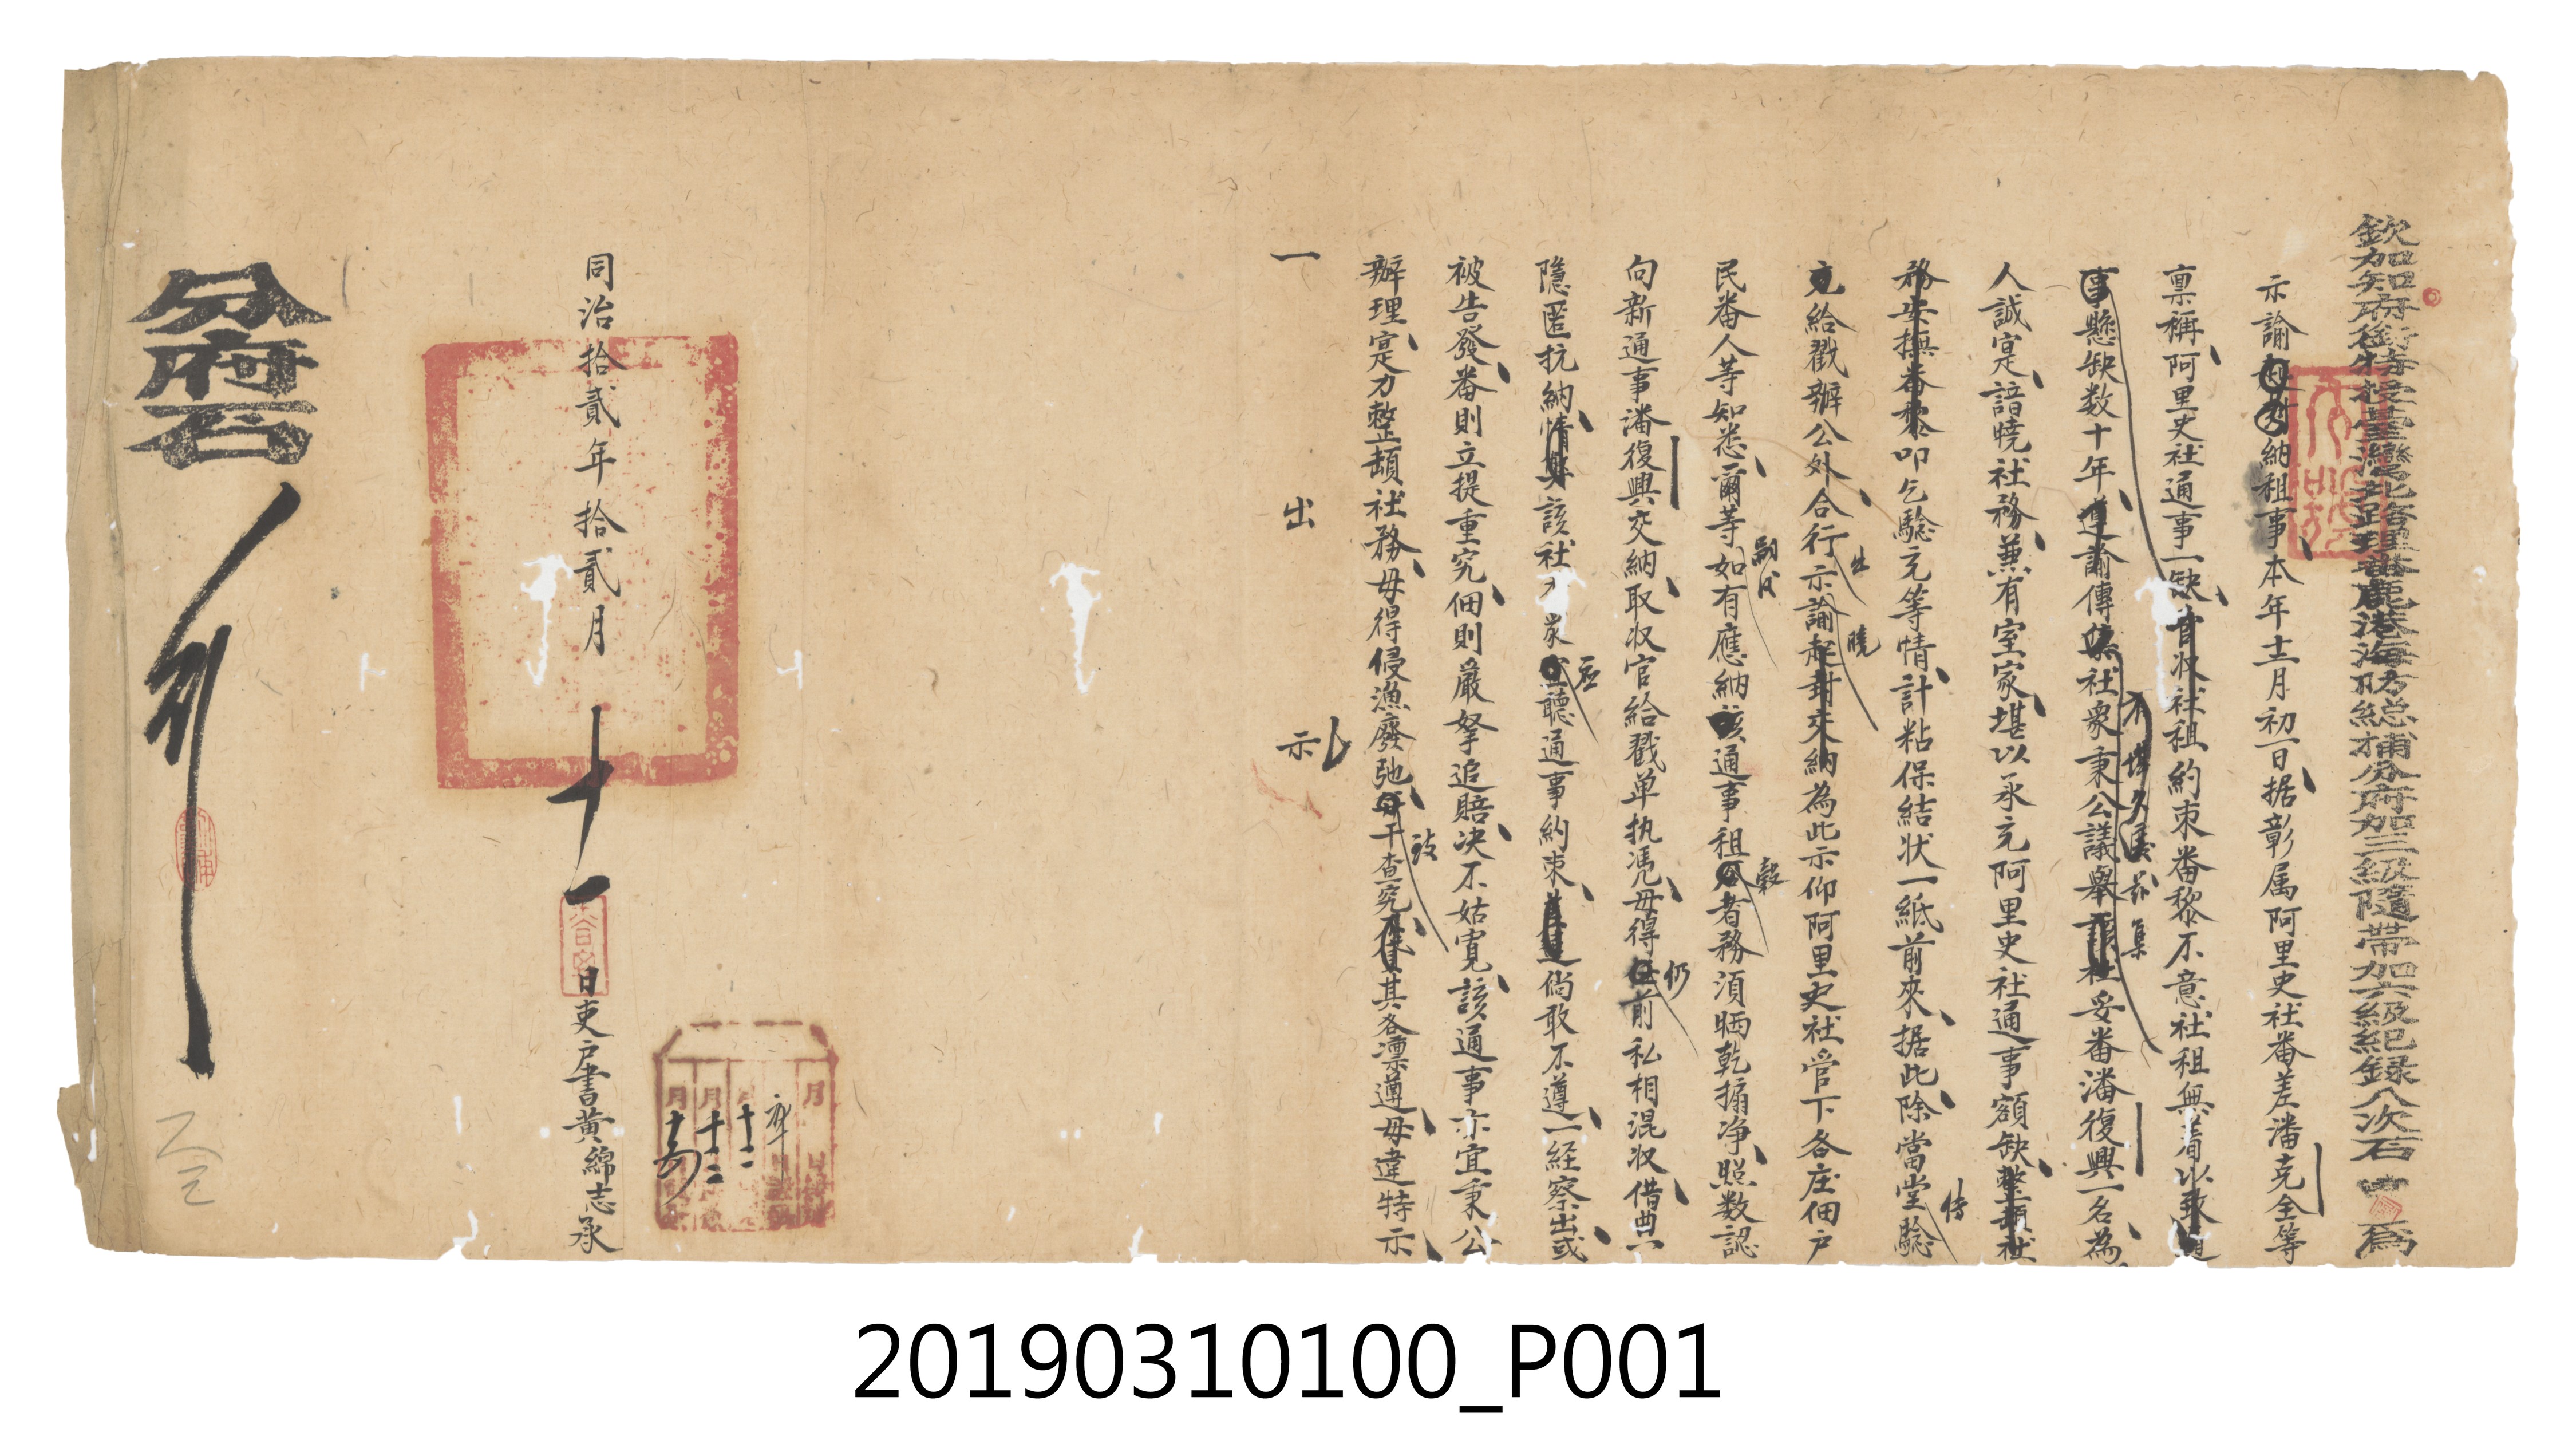 欽加知府銜特授臺灣北路理番鹿港海防總捕分府加三級隨帶加六級紀錄八次石 一 為
示諭納租事本年十二月初一日据彰属阿里史社番差潘克全等
禀稱阿里史社通事一缺首收社租約束番黎不意社租無着以致通
事懸缺数十年遵諭傳集社衆秉公議舉該社妥番潘復興一名為
不堪久廢茲集
人誠寔諳曉社務兼有室家堪以承充阿里史社通事額缺整頓社
務安撫番黎叩乞驗充等情計粘保結状一紙前來据此除當堂驗
傳
充給戳辦公外合行示諭起封來納為此示仰阿里史社管下各庄佃户
出 曉
民番人等知悉爾等如有應納該通事租者務須晒乾搧净照数認
嗣後 穀
向新通事潘復興交納取収官給戳单执凭毋得前私相混収借典一
仍
隱匿抗納情弊該社衆聽通事約束倘敢不遵一経察出或
應
被告發番則立提重究佃則嚴拏追賠决不姑寬該通事亦宜秉公
辦理寔力整頓社務毋得侵漁廢弛干查究其各凛遵毋違特示
致
一 出 示
同治拾貳年拾貳月 十一 日吏户書黄綿志承
月 月 月
十二
十二
分府石
行
20190310100_P001